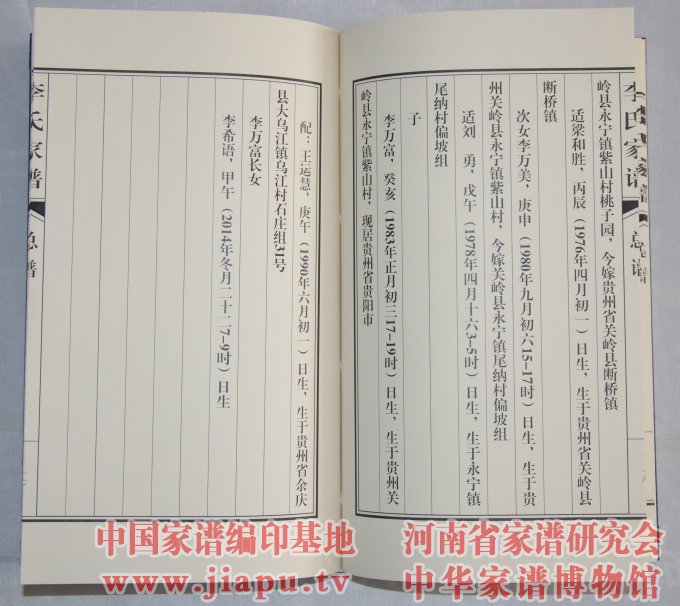 李氏家谱
总谱
岭县永宁镇紫山村桃子园，今嫁贵州省关岭县断桥镇
适梁和胜，丙辰（1976年四月初一）日生，生于贵州省关岭县
断桥镇
次女李万美，庚申（1980年九月初六15-17时）日生，生于贵
州关岭县永宁镇紫山村，今嫁关岭县永宁镇尾纳村偏坡组
适刘　勇，戊午（1978年四月十六3-5时）日生，生于永宁镇
尾纳村偏坡组
子
李万富，癸亥（1983年正月初三17-19时）日生，生于贵州关
岭县永宁镇紫山村，现居贵州省贵阳市
配：王运慧，庚午（1990年六月初一）日生，生于贵州省余庆
县大乌江镇乌江村石庄组31号
李万富长女
李希语，甲午（2014年冬月二十二7-9时）日生
李氏家谱
总谱
中国家谱编印基地
河南省家谱研究会
www.jiapu.tv
中华家谱博物馆